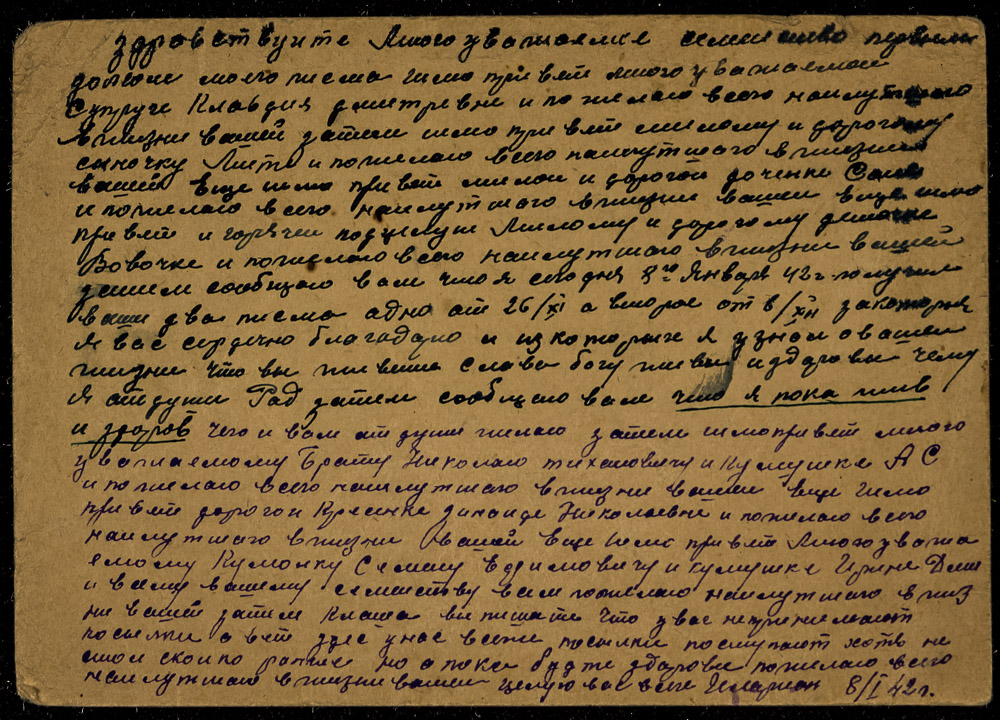 Здравствуите Многоуважаемае семеиство первым
долгом моего писма шлю привет многоуважаемой
Супруге Клавдия дмитревне и пожелаю всего наилутшаго
в жизни вашей затем шлю привет милому и дорогому
сыночку Мите и пожелаю всего наилутшаго в жизни
вашей еще шлю привет милой и дорогой доченке
и пожелаю всего наилутшаго в жизни вашей еще шлю
привет и горячеи поцелуи милому и дорогому деточке
Вовочке и пожелаю всего наилутшаго в жизни вашей
затем сообщаю вам что я сегодня 8го Января 42 г получил
ваши два писма адно ат 26/XI а второе от 8/XII за которыя
Я вас сердечно благодарю и из которых я узнал о вашей
жизни что вы пока слава богу живы и здаровы чему
Я ат души Рад затем сообщаю вам что я пока жив
и здоров чего и вам ат души желаю затем шлю привет много
уважаемому Брату Николаю тихановичу и Кумушке А С
и пожелаю всего наилутшаго в жизни вашей еще шлю
привет дорогой Кресенке Зинаиде Николаевне и пожелаю всего
наилутшаго в жизни вашей еще шлю привет Многоуважа
емому Кумоньку Семену Ефимовичу и кумушке Ирине Дми
и всему вашему семеиству всем пожелаю наилутшаго в жиз
ни вашей затем Клаша вы пишите что у вас непринемают
посылки а вот здес у нас всете посылки поступают хоть не
столь сколко ранше но а пока будте здаровы пожелаю всего
наилутшаго в жизни вашей целую вас всех Иларион 8/I 42 г.